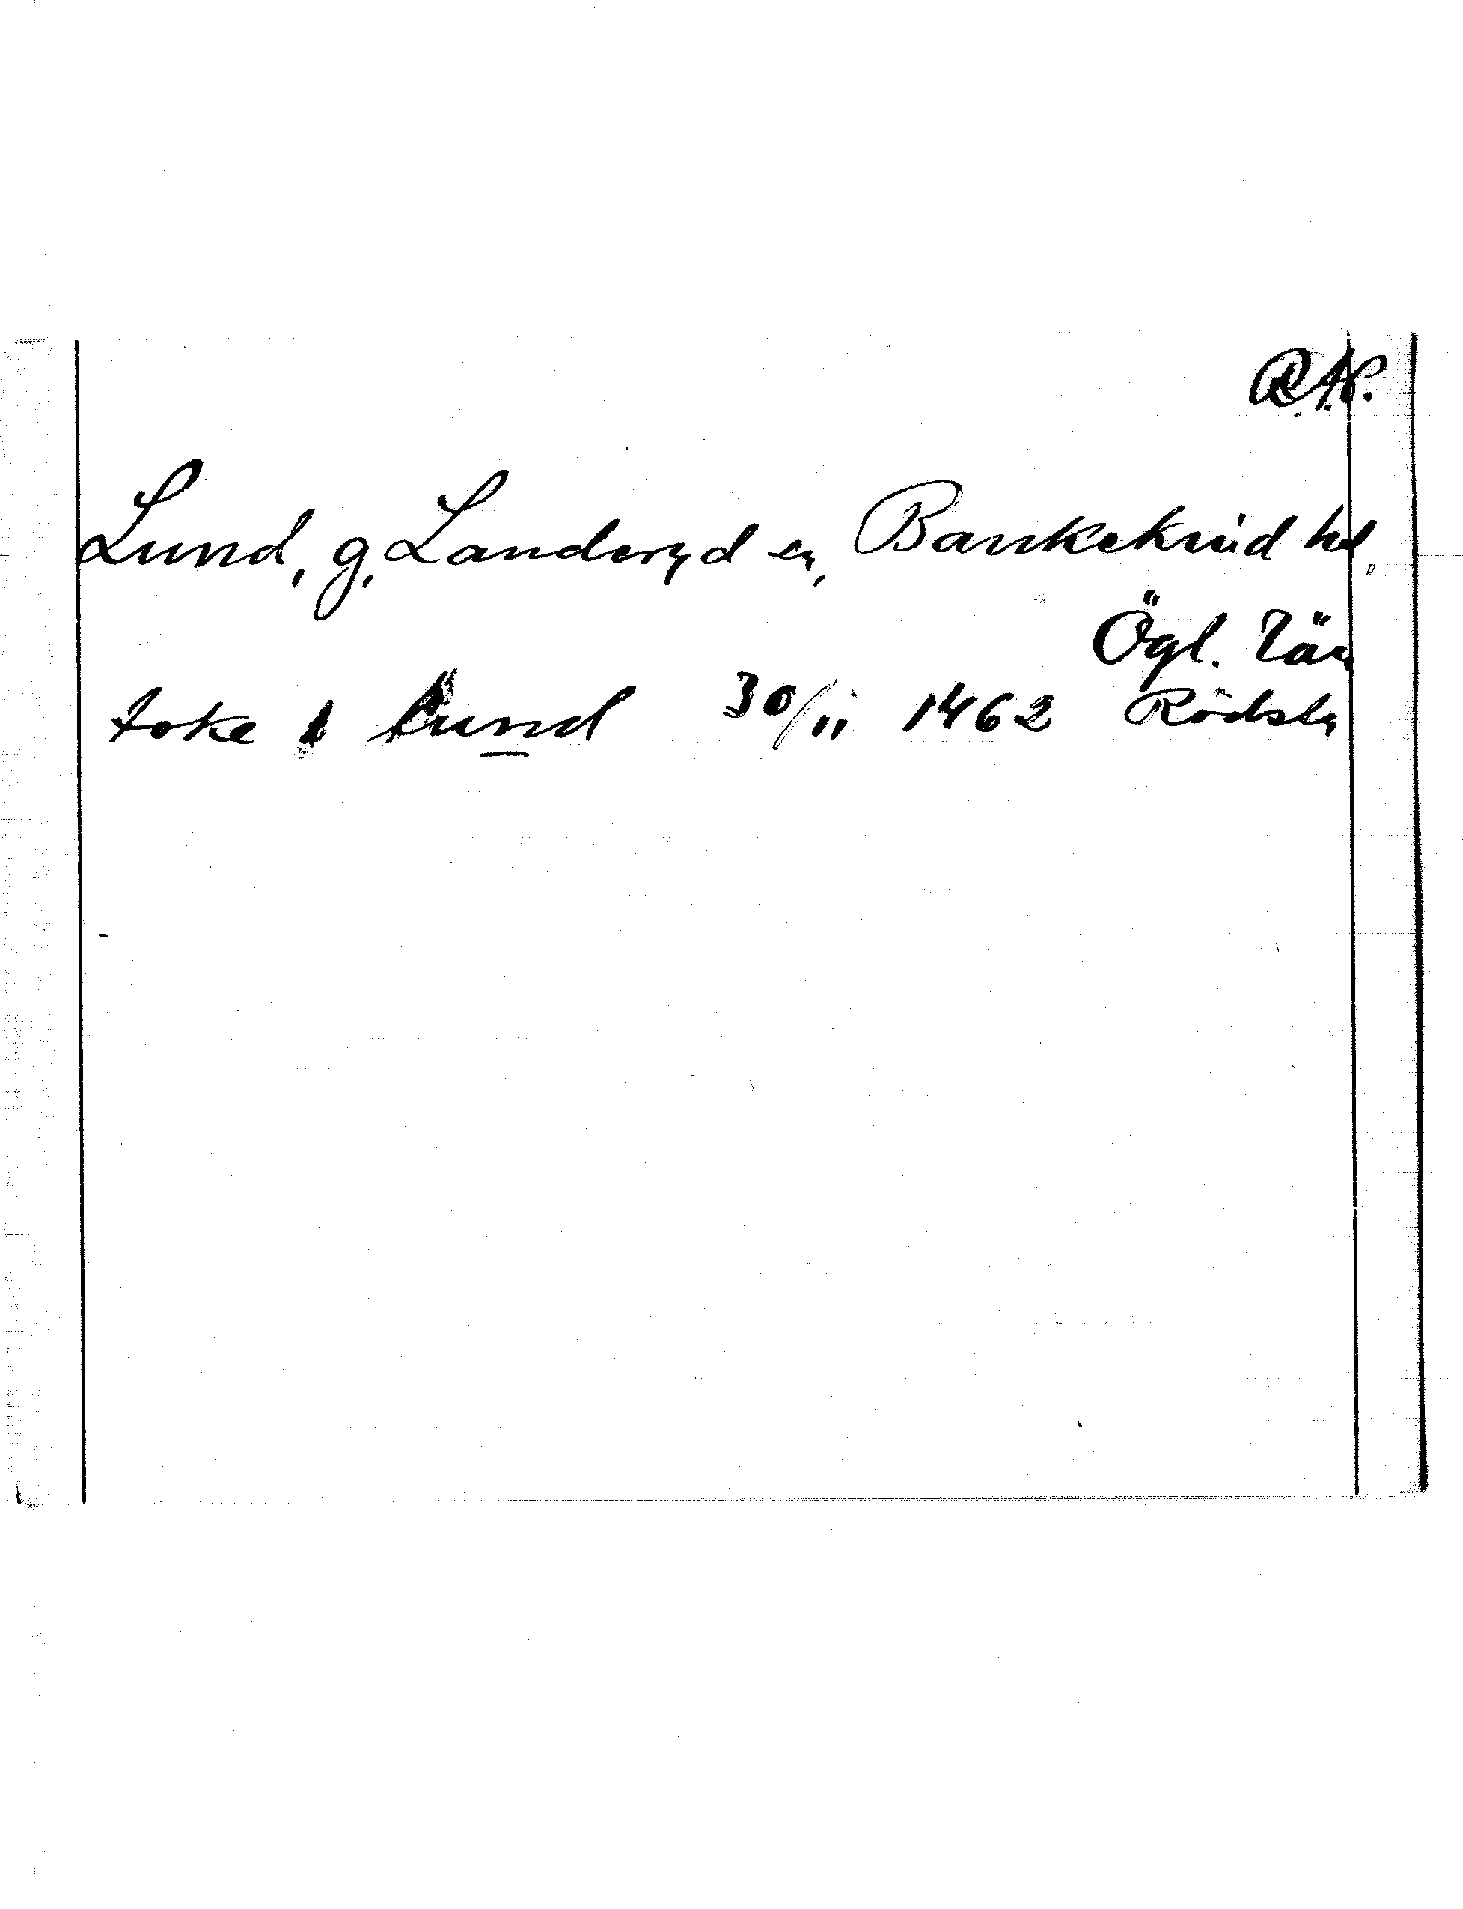 R.A.
Lund, g, Landeryd sn, Bankekind hd,
Ögl. län
toke i Lund 30/11 1462 Rödsta